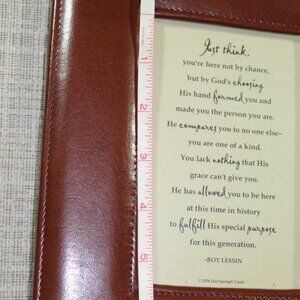 Just think,
you're here not by chance,
but by God's choosing.
His hand formed you and
made you the person you are.
He compares you to no one else–
you are one of a kind.
You lack nothing that His
grace can't give you.
He has allowed you to be here
at this time in history
to fulfill His special purpose
for this generation.
–ROY LESSIN
© 2016 DaySpring® Cards
1
2
3
4
5